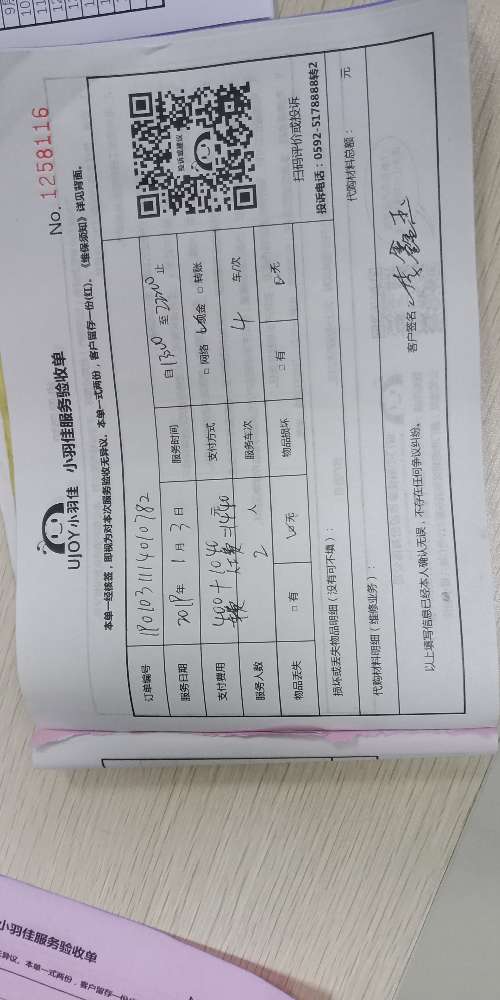 UJOY小羽佳 小羽佳服务验收单
No. 1258116
本单一经核签，即视为对本次服务验收无异议。本单一式两份，客户留存一份(红)。《维保须知》详见背面。
订单编号 1801031114010782
服务日期 2018年 1月 3日 服务时间 自13:00 至22:00止
支付费用 400+1040 =1440元 支付方式 □网络 ☑现金 □转账
车费
服务人数 2 人 服务车次 4 车/次
物品丢失 □有 ☑无 物品损坏 □有 ☑无
投诉或建议
扫码评价或投诉
投诉电话：0592-5178888转2
损坏或丢失物品明细（没有可不填）：
代购材料明细（维修业务）： 代购材料总额： 元
以上填写信息已经本人确认无误，不存在任何争议纠纷。 客户签名
小羽佳服务验收单
无异议。本单一式两份，客户留存一份